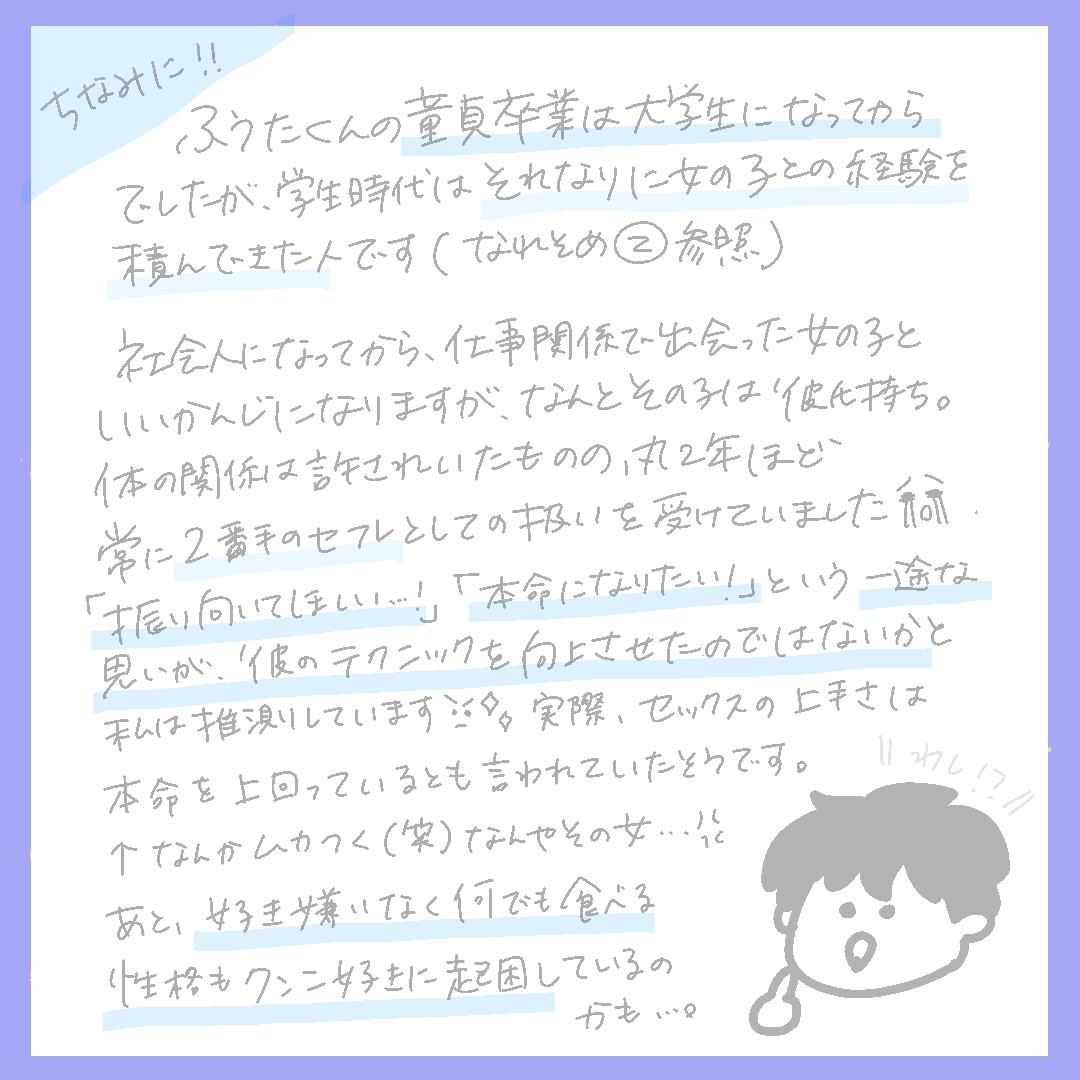 ちなみに!!
ふうたくんの童貞卒業は大学生になってから
でしたが、学生時代はそれなりに女の子との経験を
積んできた人です(なれそめ②参照)
社会人になってから、仕事関係で出会った女の子と
いいかんじになりますが、なんとその子は彼氏持ち。
体の関係は許されいたものの、丸2年ほど
常に2番手のセフレとしての扱いを受けていました
「振り向いてほしい…!」「本命になりたい!」という一途な
思いが、彼のテクニックを向上させたのではないかと
私は推測しています 実際、セックスの上手さは
本命を上回っているとも言われていたそうです。
↑なんかムカつく(笑)なんやその女…
わし!?
あと、好き嫌いなく何でも食べる
性格もクンニ好きに起因しているの
かも…。